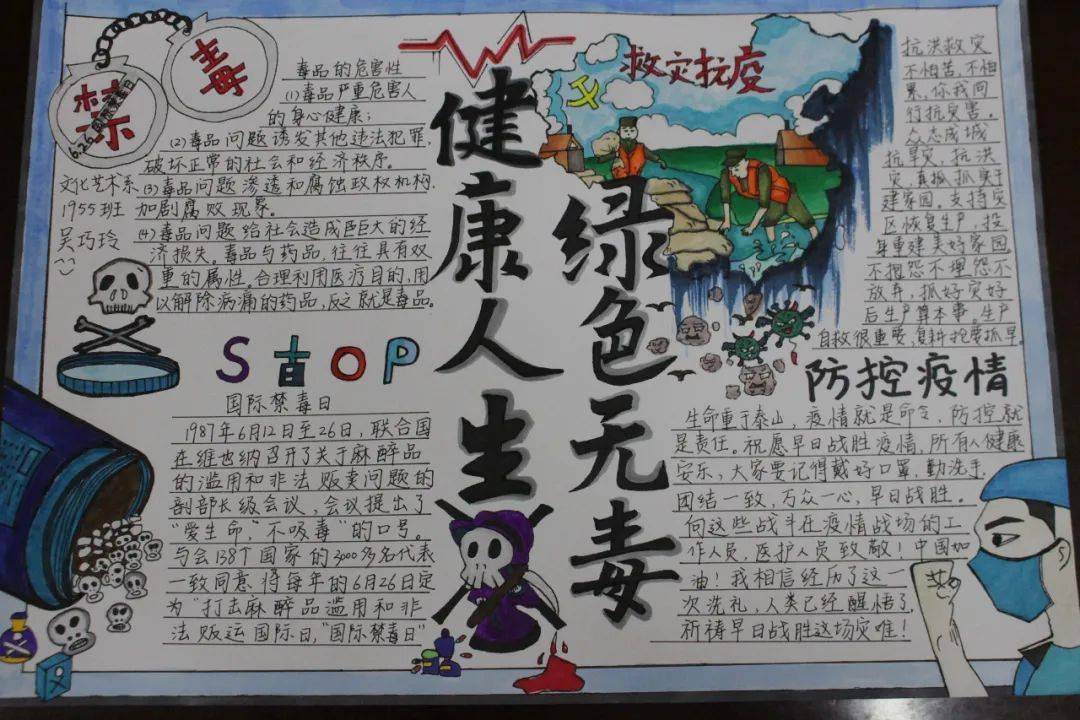 禁毒
6.26国际禁毒日
毒品的危害性
(1)毒品严重危害人
的身心健康;
(2)毒品问题诱发其他违法犯罪,
破坏正常的社会和经济秩序。
(3)毒品问题渗透和腐蚀政权机构,
加剧腐败现象。
(4)毒品问题给社会造成巨大的经
济损失。毒品与药品,往往具有双
重的属性。合理利用医疗目的,用
以解除病痛的药品,反之就是毒品。
文化艺术系
1955班
吴巧玲
STOP
国际禁毒日
1987年6月12日至26日,联合国
在维也纳召开了关于麻醉品
的滥用和非法贩卖问题的
剖部长级会议,会议提出了
“爱生命,不吸毒”的口号。
与会138个国家的3000多名代表
一致同意将每年的6月26日定
为“打击麻醉品滥用和非
法贩运国际日,“国际禁毒日”
健康人生
绿色无毒
救灾抗疫
抗洪救灾
不怕苦,不怕
累,你我同
行抗灾害。
众志成城
抗旱灾,抗洪
灾,真抓抓实干
建家园。支持灾
区恢复生产,投
身重建美好家园
不抱怨不埋怨不
放弃,抓好灾好
后生产算本事。生产
自救很重要,复耕抢要抓早
防控疫情
生命重于泰山,疫情就是命令,防控就
是责任。祝愿早日战胜疫情,所有人健康
安乐,大家要记得戴好口罩,勤洗手,
团结一致,万众一心,早日战胜。
向这些战斗在疫情战场的工
作人员,医护人员致敬!中国加
油!我相信经历了这一
次洗礼,人类已经醒悟了,
祈祷早日战胜这场灾难!